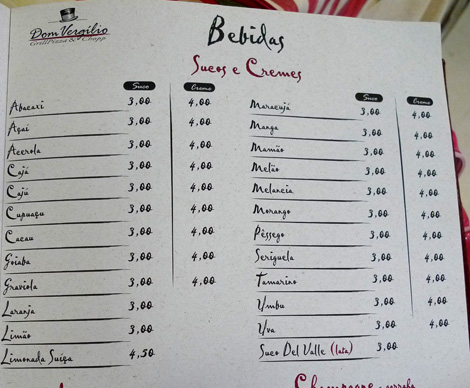 Dom Vergilio
Grill Pizza & Chopp
Bebidas
Sucos e Cremes
Suco Creme
Abacaxi 3,00 4,00
Açaí 3,00 4,00
Acerola 3,00 4,00
Cajá 3,00 4,00
Cajú 3,00 4,00
Cupuaçu 3,00 4,00
Cacau 3,00 4,00
Goiaba 3,00 4,00
Graviola 3,00 4,00
Laranja 3,00
Limão 3,00
Limonada Suíça 4,50
Suco Creme
Maracujá 3,00 4,00
Manga 3,00 4,00
Mamão 3,00 4,00
Melão 3,00 4,00
Melancia 3,00 4,00
Morango 3,00 4,00
Pêssego 3,00 4,00
Seriguela 3,00 4,00
Tamarino 3,00 4,00
Umbu 3,00 4,00
Uva 3,00 4,00
Suco Del Valle (lata) 3,00
Champagne